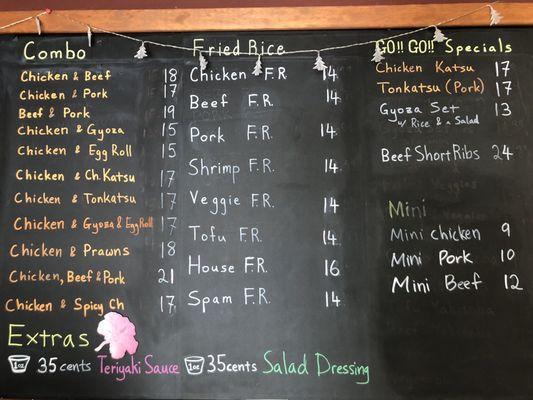 Combo
Chicken & Beef 18
Chicken & Pork 17
Beef & Pork 19
Chicken & Gyoza 15
Chicken & Egg Roll 15
Chicken & Ch. Katsu 17
Chicken & Tonkatsu 17
Chicken & Gyoza & Egg Roll 17
Chicken & Prawns 18
Chicken, Beef & Pork 21
Chicken & Spicy Ch 17
Fried Rice
Chicken F.R 14
Beef F.R. 14
Pork F.R. 14
Shrimp F.R. 14
Veggie F.R. 14
Tofu F.R. 14
House F.R. 16
Spam F.R. 14
GO!! GO!! Specials
Chicken Katsu 17
Tonkatsu (Pork) 17
Gyoza Set 13
w/ Rice & a Salad
Beef Short Ribs 24
Mini
Mini chicken 9
Mini Pork 10
Mini Beef 12
Extras
1oz 35 cents Teriyaki Sauce 1oz 35 cents Salad Dressing